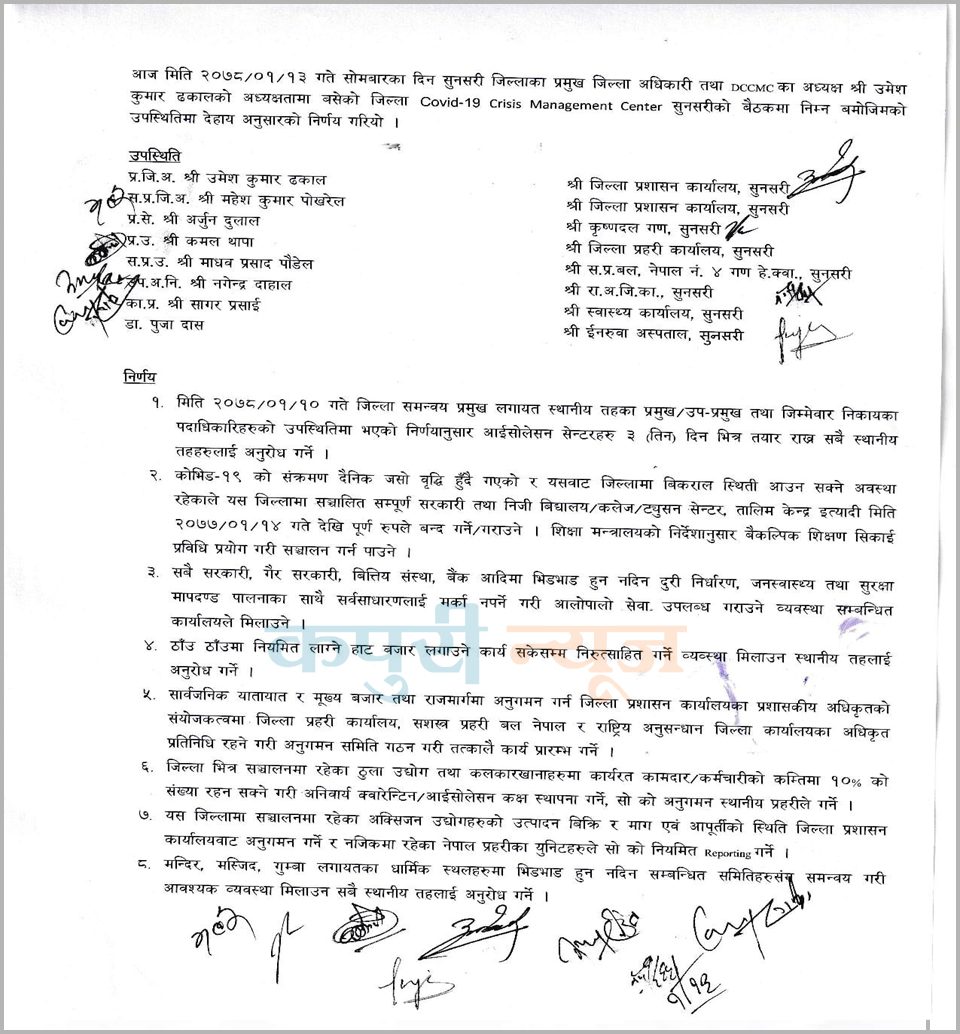 आज मिति २०७८/०१/१३ गते सोमबारका दिन सुनसरी जिल्लाका प्रमुख जिल्ला अधिकारी तथा DCCMC का अध्यक्ष श्री उमेश
कुमार ढकालको अध्यक्षतामा बसेको जिल्ला Covid-19 Crisis Management Center सुनसरीको बैठकमा निम्न बमोजिमको
उपस्थितिमा देहाय अनुसारको निर्णय गरियो ।
उपस्थिति
प्र.जि.अ. श्री उमेश कुमार ढकाल
स.प्र.जि.अ. श्री महेश कुमार पोखरेल
प्र.से. श्री अर्जुन दुलाल
प्र.उ. श्री कमल थापा
स.प्र.उ. श्री माधव प्रसाद पौडेल
उप.अ.नि. श्री नगेन्द्र दाहाल
का.प्र. श्री सागर प्रसाई
डा. पुजा दास
श्री जिल्ला प्रशासन कार्यालय, सुनसरी
श्री जिल्ला प्रशासन कार्यालय, सुनसरी
श्री कृष्णदल गण, सुनसरी
श्री जिल्ला प्रहरी कार्यालय, सुनसरी
श्री स.प्र.बल, नेपाल नं. ४ गण हे.क्वा., सुनसरी
श्री रा.अ.जि.का., सुनसरी
श्री स्वास्थ्य कार्यालय, सुनसरी
श्री ईनरुवा अस्पताल, सुनसरी
निर्णय
१. मिति २०७८/०१/१० गते जिल्ला समन्वय प्रमुख लगायत स्थानीय तहका प्रमुख/उप-प्रमुख तथा जिम्मेवार निकायका
पदाधिकारिहरुको उपस्थितिमा भएको निर्णयानुसार आईसोलेसन सेन्टरहरु ३ (तिन) दिन भित्र तयार राख्न सबै स्थानीय
तहहरुलाई अनुरोध गर्ने ।
२. कोभिड-१९ को संक्रमण दैनिक जसो वृद्धि हुँदै गएको र यसवाट जिल्लामा बिकराल स्थिती आउन सक्ने अवस्था
रहेकाले यस जिल्लामा सञ्चालित सम्पूर्ण सरकारी तथा निजी बिद्यालय/कलेज/ट्युसन सेन्टर, तालिम केन्द्र इत्यादी मिति
२०७७/०१/१४ गते देखि पूर्ण रुपले बन्द गर्ने/गराउने । शिक्षा मन्त्रालयको निर्देशानुसार बैकल्पिक शिक्षण सिकाई
प्रविधि प्रयोग गरी सञ्चालन गर्न पाउने ।
३. सबै सरकारी, गैर सरकारी, बित्तिय संस्था, बैंक आदिमा भिडभाड हुन नदिन दुरी निर्धारण, जनस्वास्थ्य तथा सुरक्षा
मापदण्ड पालनाका साथै सर्वसाधारणलाई मर्का नपर्ने गरी आलोपालो सेवा उपलब्ध गराउने व्यवस्था सम्बन्धित
कार्यालयले मिलाउने ।
कपुरी न्यूज
४. ठाँउ ठाँउमा नियमित लाग्ने हाट बजार लगाउने कार्य सकेसम्म निरुत्साहित गर्ने व्यव्स्था मिलाउन स्थानीय तहलाई
अनुरोध गर्ने ।
५. सार्वजनिक यातायात र मूख्य बजार तथा राजमार्गमा अनुगमन गर्न जिल्ला प्रशासन कार्यालयका प्रशासकीय अधिकृतको
संयोजकत्वमा जिल्ला प्रहरी कार्यालय, सशस्त्र प्रहरी बल नेपाल र राष्ट्रिय अनुसन्धान जिल्ला कार्यालयका अधिकृत
प्रतिनिधि रहने गरी अनुगमन समिति गठन गरी तत्कालै कार्य प्रारम्भ गर्ने ।
६. जिल्ला भित्र सञ्चालनमा रहेका ठुला उद्योग तथा कलकारखानाहरुमा कार्यरत कामदार/कर्मचारीको कम्तिमा १०% को
संख्या रहन सक्ने गरी अनिवार्य क्वारेन्टिन/आईसोलेसन कक्ष स्थापना गर्ने, सो को अनुगमन स्थानीय प्रहरीले गर्ने ।
७. यस जिल्लामा सञ्चालनमा रहेका अक्सिजन उद्योगहरुको उत्पादन बिक्रि र माग एवं आपूर्तीको स्थिति जिल्ला प्रशासन
कार्यालयवाट अनुगमन गर्ने र नजिकमा रहेका नेपाल प्रहरीका युनिटहरुले सो को नियमित Reporting गर्ने ।
८. मन्दिर, मस्जिद, गुम्बा लगायतका धार्मिक स्थलहरुमा भिडभाड हुन नदिन सम्बन्धित समितिहरुसंग समन्वय गरी
आवश्यक व्यवस्था मिलाउन सबै स्थानीय तहलाई अनुरोध गर्ने ।